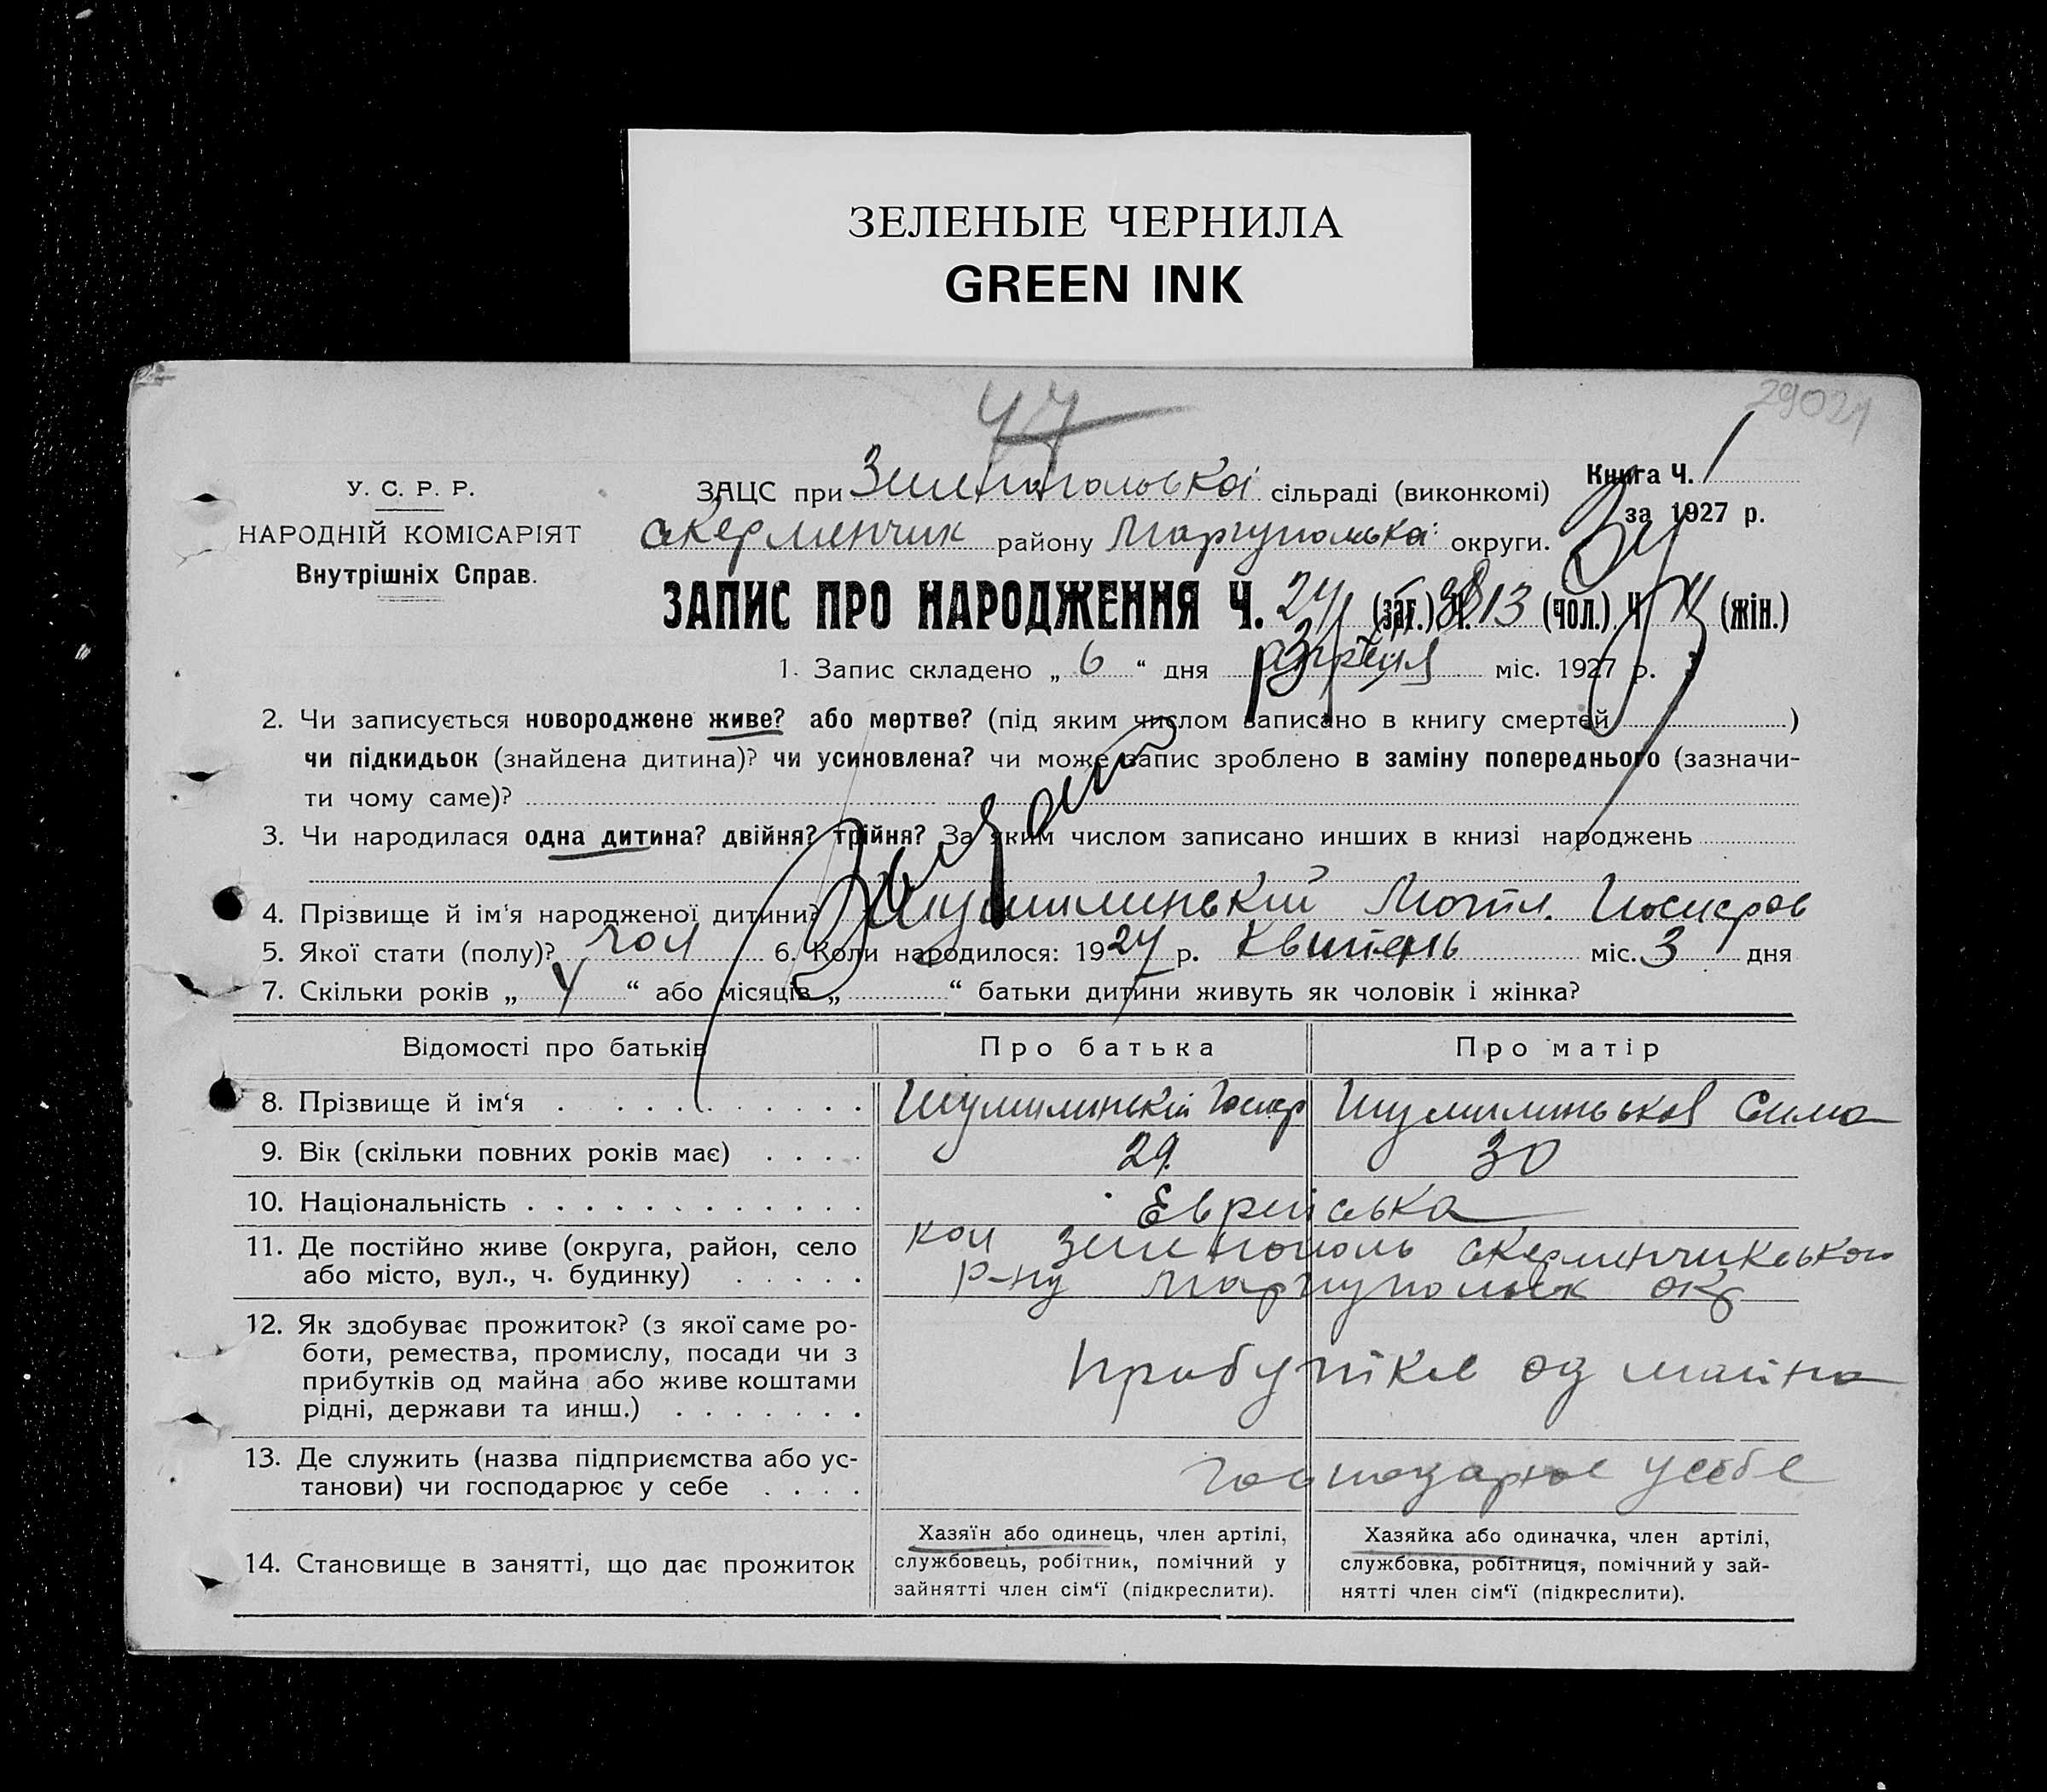 ЗЕЛЕНЫЕ ЧЕРНИЛА
GREEN INK
47
29021
У. С. Р. Р.
НАРОДНІЙ КОМІСАРІЯТ
Внутрішніх Справ.
ЗАЦС при Зеленопольскої сільраді (виконкомі)
Керменчик району Маріупольскої округи.
Книга Ч. 1
за 1927 р.
ЗАПИС ПРО НАРОДЖЕННЯ Ч. 24 (заг.) Ч. 13 (чол.) Ч. (жін.)
1. Запис складено „ 6 “ дня апреля міс. 1927 р.
2. Чи записується новороджене живе? або мертве? (під яким числом записано в книгу смертей )
чи підкидьок (знайдена дитина)? чи усиновлена? чи може запис зроблено в заміну попереднього (зазначи-
ти чому саме)?
3. Чи народилася одна дитина? двійня? трійня? За яким числом записано инших в книзі народжень
4. Прізвище й ім'я народженої дитини? Шумилинський Мотл.
5. Якої стати (полу)? чол 6. Коли народилося: 1927 р. Квітень міс. 3 дня
7. Скільки років „ 4 “ або місяців „ “ батьки дитини живуть як чоловік і жінка?
Відомості про батьків
Про батька
Про матір
8. Прізвище й ім'я Шумилинскій Шумилинськая Сима
9. Вік (скільки повних років має) 29. 30
10. Національність Еврейська
11. Де постійно живе (округа, район, село або місто, вул., ч. будинку)
кол Зеленополь Керменчикського
р-ну Маріупольск окр
12. Як здобуває прожиток? (з якої саме ро-
боти, ремества, промислу, посади чи з
прибутків од майна або живе коштами
рідні, держави та инш.)
прибутке од майна
13. Де служить (назва підприємства або ус-
танови) чи господарює у себе
господарює у себе
14. Становище в занятті, що дає прожиток
Хазяїн або одинець, член артілі,
службовець, робітник, помічний у
зайнятті член сім'ї (підкреслити).
Хазяйка або одиначка, член артілі,
службовка, робітниця, помічний у зай-
нятті член сім'ї (підкреслити).